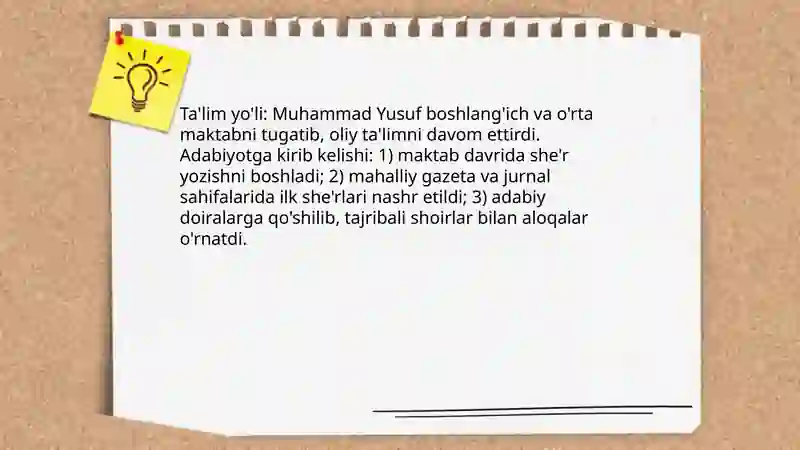 Ta'lim yo'li: Muhammad Yusuf boshlang'ich va o'rta
maktabni tugatib, oliy ta'limni davom ettirdi.
Adabiyotga kirib kelishi: 1) maktab davrida she'r
yozishni boshladi; 2) mahalliy gazeta va jurnal
sahifalarida ilk she'rlari nashr etildi; 3) adabiy
doiralarga qo'shilib, tajribali shoirlar bilan aloqalar
o'rnatdi.